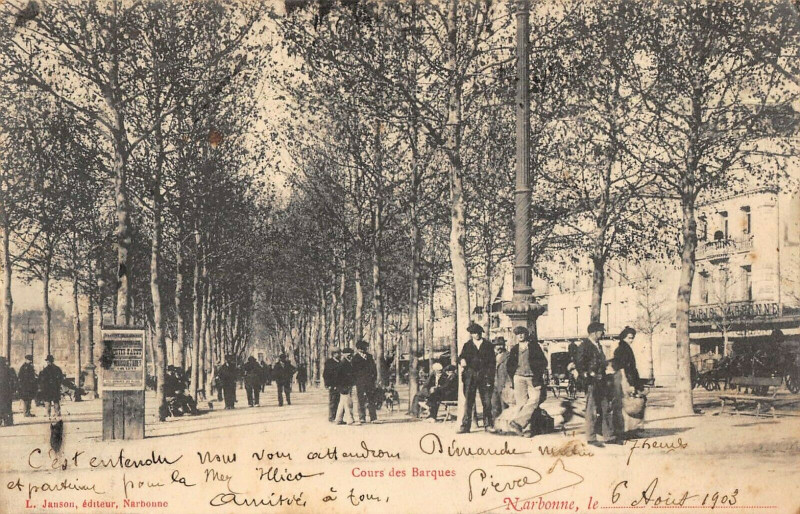 PARIS NARBONNE
C'est entendu nous vous attendrons Demande matin 7 heures
et partirons pour la Mer
Cours des Barques
Amitiés à tous,
Pierre
L. Janson, éditeur, Narbonne
Narbonne, le 6 Août 1903